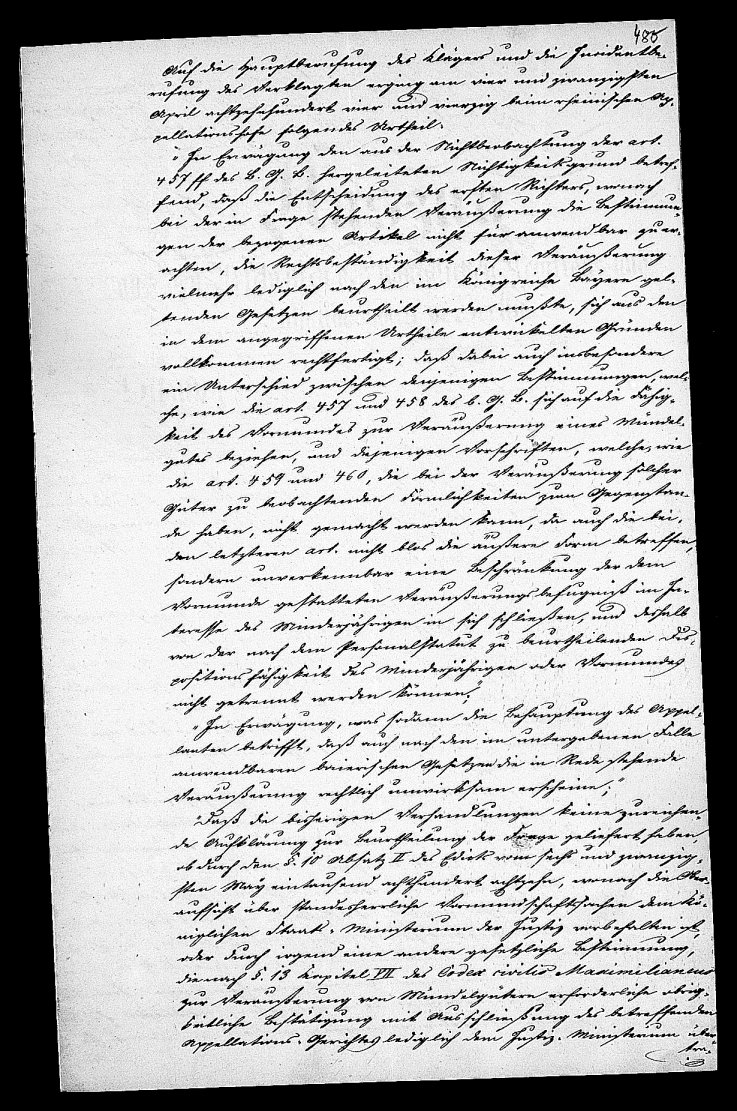 486
Auf die Hauptberufung des Klägers und die Incidentbe-
rufung des Verklagten erging am vier und zwanzigsten
April achtzehnhundert vier und vierzig beim rheinischen Ap-
pellationshofe folgendes Urtheil.
"In Erwägung den aus der Nichtbeobachtung der art.
457 ff des b. G. B. hergeleiteten Nichtigkeitsgrund betref-
fend, daß die Entscheidung des ersten Richters, wonach
bei der in Frage stehenden Veräußerung die Bestimmun-
gen der bezogenen Artikel nicht für anwendbar zu er-
achten, die Rechtsbeständigkeit dieser Veräußerung
vielmehr lediglich nach den im Königreiche Bayern gel-
tenden Gesetzen beurtheilt werden mußte, sich aus den
in dem angegriffenen Urtheile entwickelten Gründen
vollkommen rechtfertigt; daß dabei auch insbesondere
ein Unterschied zwischen denjenigen Bestimmungen, wel-
che, wie die art. 457 und 458 des b. G. B. sich auf die Fähig-
keit des Vormundes zur Veräußerung eines Mündel-
gutes beziehen, und diejenigen Vorschriften, welche, wie
die art. 459 und 460, die bei der Veräußerung solcher
Güter zu beobachtenden Förmlichkeiten zum Gegenstan-
de haben, nicht gemacht werden kann, da auch die bei-
den letzteren art. nicht blos die äußere Form betreffen,
sondern unverkennbar eine Beschränkung der dem
Vormunde gestatteten Veräußerungsbefugniß im In-
teresse des Minderjährigen in sich schließen, und deshalb
von der nach dem Personalstatut zu beurtheilenden Dis-
positionsfähigkeit des Minderjährigen oder Vormundes
nicht getrennt werden können;"
"In Erwägung, was sodann die Behauptung des Appel-
lanten betrifft, daß auch nach den im untergebenen Falle
anwendbaren baierischen Gesetzen die in Rede stehende
Veräußerung rechtlich unwirksam erscheine;"
"Daß die bisherigen Verhandlungen keine zureichen-
de Aufklärung zur Beurtheilung der Frage geliefert haben,
ob durch den §. 10 Absatz II des Edict vom sechs und zwanzig-
sten May eintausend achthundert achtzehn, wonach die Ober-
aufsicht über standesherrliche Vormundschaftssachen dem Kö-
niglichen Staats-Ministerium der Justiz vorbehalten ist,
oder durch irgend eine andere gesetzliche Bestimmung,
die nach §. 13 Kapitel VII des Codex civilis Maximilianeus
zur Veräußerung von Mündelgütern erforderliche obrig-
keitliche Bestätigung mit Ausschließung des betreffenden
Appellations-Gerichtes lediglich dem Justiz-Ministerium über-
tra-